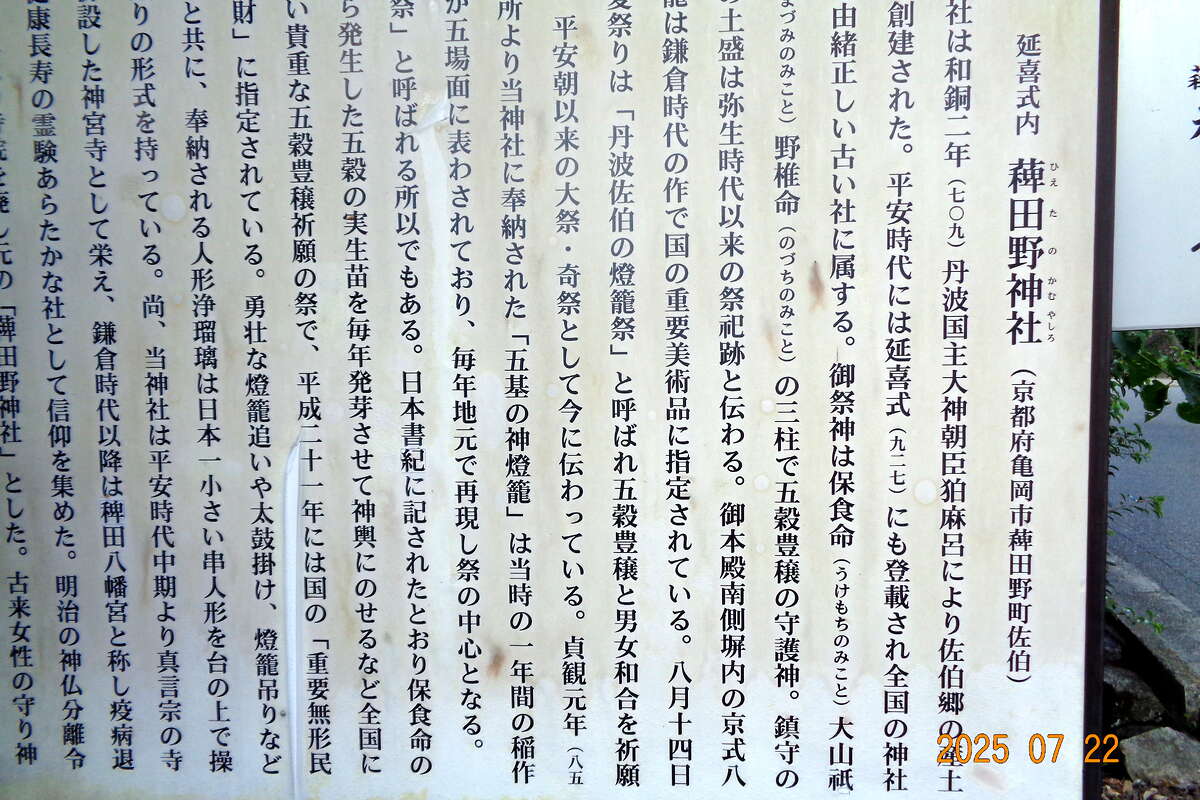 延喜式内 蘜田野神社（京都府亀岡市薭田野町佐伯）
ひえ た の かむ やしろ
社は和銅二年（七〇九）丹波国主大神朝臣狛麻呂により佐伯郷の産土
創建された。平安時代には延喜式（九二七）にも登載され全国の神社
由緒正しい古い社に属する。御祭神は保食命（うけもちのみこと）大山祇
まづみのみこと）野椎命（のづちのみこと）の三柱で五穀豊穣の守護神。鎮守の
の土盛は弥生時代以来の祭祀跡と伝わる。御本殿南側塀内の京式八
籠は鎌倉時代の作で国の重要美術品に指定されている。八月十四日
夏祭りは「丹波佐伯の燈籠祭」と呼ばれ五穀豊穣と男女和合を祈願
平安朝以来の大祭・奇祭として今に伝わっている。貞観元年（八五
所より当神社に奉納された「五基の神燈籠」は当時の一年間の稲作
が五場面に表わされており、毎年地元で再現し祭の中心となる。
祭」と呼ばれる所以でもある。日本書紀に記されたとおり保食命の
ら発生した五穀の実生苗を毎年発芽させて神輿にのせるなど全国に
い貴重な五穀豊穣祈願の祭で、平成二十一年には国の「重要無形民
財」に指定されている。勇壮な燈籠追いや太鼓掛け、燈籠吊りなど
と共に、奉納される人形浄瑠璃は日本一小さい串人形を台の上で操
りの形式を持っている。尚、当神社は平安時代中期より真言宗の寺
設した神宮寺として栄え、鎌倉時代以降は稗田八幡宮と称し疫病退
健康長寿の霊験あらたかな社として信仰を集めた。明治の神仏分離令
寺院を廃し元の「薭田野神社」とした。古来女性の守り神
2025 07 22